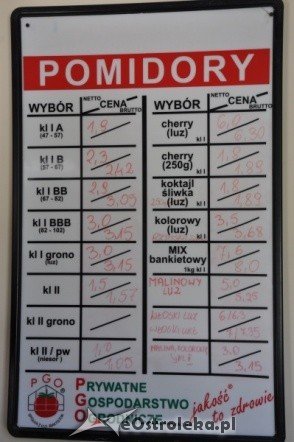 POMIDORY
WYBÓR NETTO CENA BRUTTO
kl I A
(47 - 57)
1,8
kl I B
(57 - 67)
2,3 2,42
kl I BB
(67 - 82)
2,9 3,05
kl I BBB
(82 - 102)
3,0 3,15
kl I grono
(luz)
3,0 3,15
kl II
1,5 1,57
kl II grono
kl II / pw
(niesor.)
1,0 1,05
WYBÓR NETTO CENA BRUTTO
cherry
(luz) kl I
6,0 6,30
cherry
(250g) kl I
1,8 1,89
koktajl
śliwka
(luz) kl I
1,8 1,89
kolorowy
(luz) kl I
3,5 3,68
MIX
bankietowy
1kg kl I
7,6 8,0
MALINOWY
LUZ
5,0 5,25
WŁOSKI LUZ
MALINA, KOLOROWY
3,0 3,15
PGO
PRYWATNE
GOSPODARSTWO
OGRODNICZE
jakość
to zdrowie
eOstroleka.pl